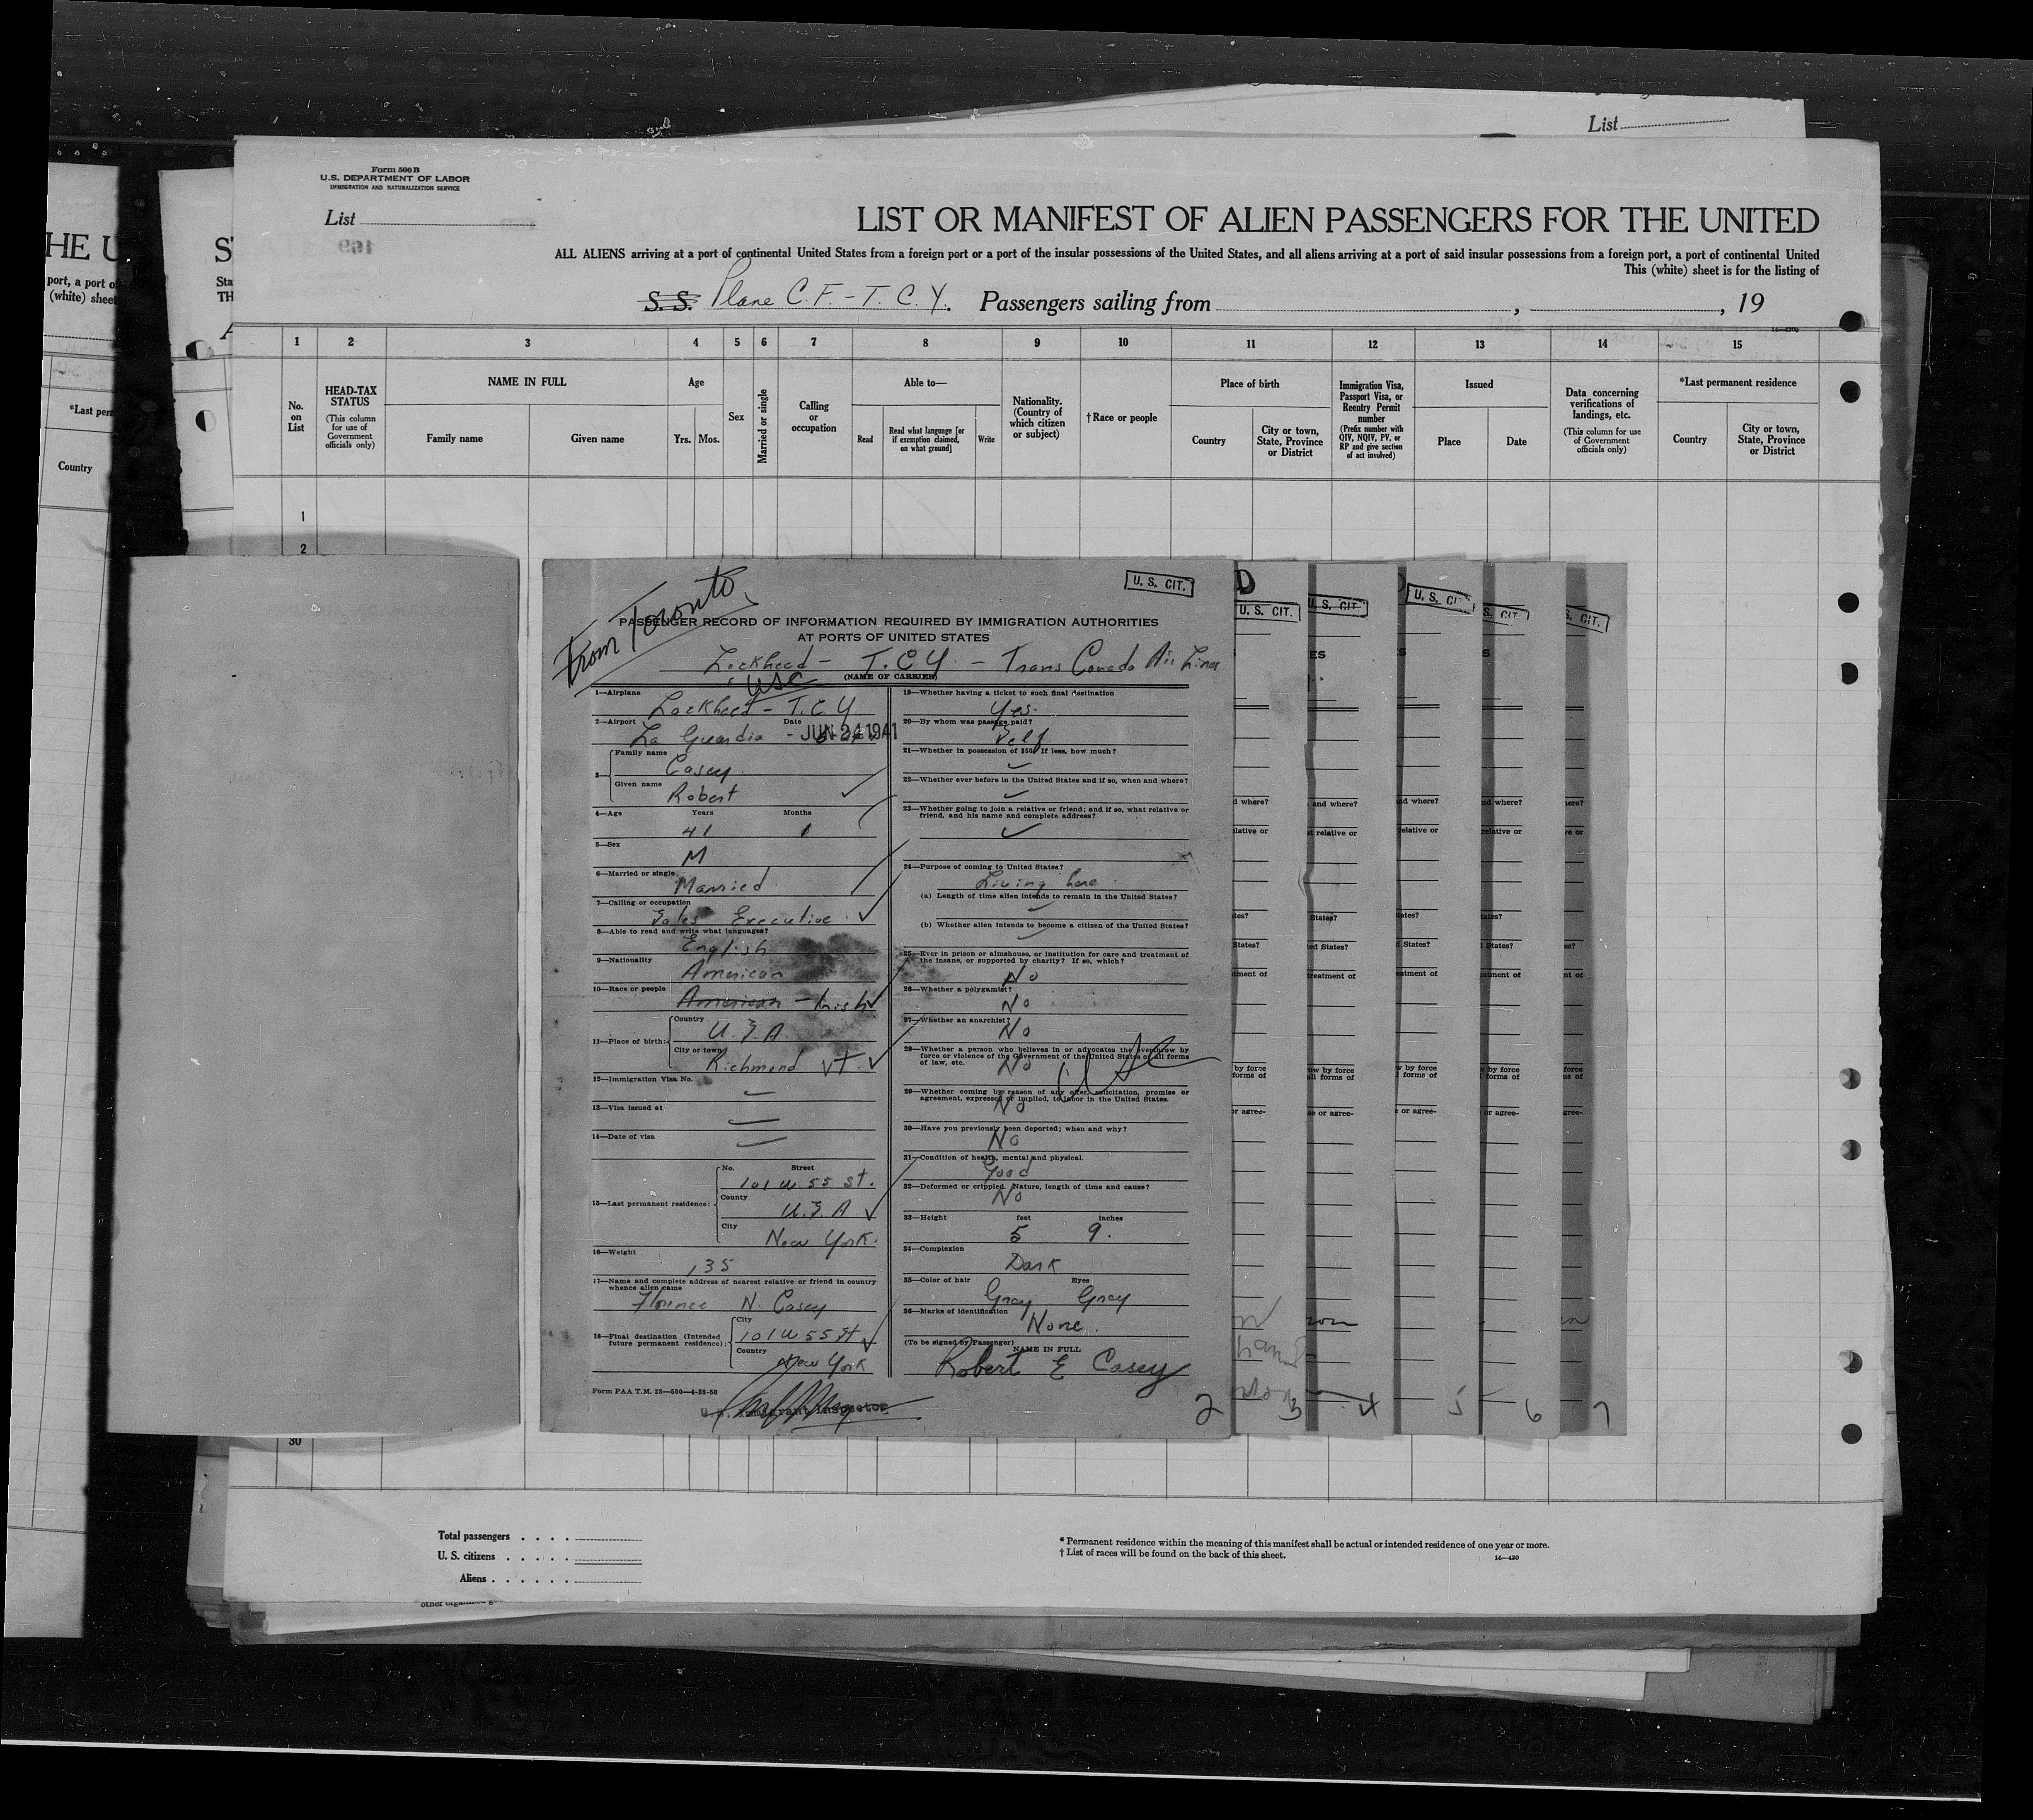 List
Form 500 B
U.S. DEPARTMENT OF LABOR
IMMIGRATION AND NATURALIZATION SERVICE
List
LIST OR MANIFEST OF ALIEN PASSENGERS FOR THE UNITED
ALL ALIENS arriving at a port of continental United States from a foreign port or a port of the insular possessions of the United States, and all aliens arriving at a port of said insular possessions from a foreign port, a port of continental United
This (white) sheet is for the listing of
S.S. Plane C.F.-T.C.Y. Passengers sailing from , , 19
HE U
port, a port o
(white) sheet
*Last perm
Country
1 2 3 4 5 6 7 8 9 10 11 12 13 14 15
No. on List
HEAD-TAX STATUS
(This column for use of Government officials only)
NAME IN FULL
Family name
Given name
Age
Yrs. Mos.
Sex
Married or single
Calling or occupation
Able to—
Read
Read what language [or if exemption claimed, on what ground]
Write
Nationality. (Country of which citizen or subject)
†Race or people
Place of birth
Country
City or town, State, Province or District
Immigration Visa, Passport Visa, or Reentry Permit number
(Prefix number with QIV, NQIV, PV, or RP and give section of act involved)
Issued
Place
Date
Data concerning verifications of landings, etc.
(This column for use of Government officials only)
*Last permanent residence
Country
City or town, State, Province or District
1
2
From Toronto
U. S. CIT.
PASSENGER RECORD OF INFORMATION REQUIRED BY IMMIGRATION AUTHORITIES
AT PORTS OF UNITED STATES
Lockheed - T.C.Y. - Trans Canada Air Lines
(NAME OF CARRIER)
USC
1—Airplane
Lockheed - T.C.Y
2—Airport Date
La Guardia - JUN 24 1941
3— Family name
Casey
Given name
Robert
4—Age Years Months
41 1
5—Sex
M
6—Married or single
Married
7—Calling or occupation
Sales Executive
8—Able to read and write what languages?
English
9—Nationality
American
10—Race or people
American - Irish
11—Place of birth: Country
U.S.A.
City or town
Richmond VT.
12—Immigration Visa No.
13—Visa issued at
14—Date of visa
15—Last permanent residence: No. Street
101 W 55 St.
County
U.S.A
City
New York.
16—Weight
135
17—Name and complete address of nearest relative or friend in country whence alien came
Florence N. Casey
18—Final destination (Intended future permanent residence): City
101 W 55 St
Country
New York
Form PAA T.M. 28—500—4-38-50
U.S. Immigrant Inspector
19—Whether having a ticket to such final destination
Yes.
20—By whom was passage paid?
Self
21—Whether in possession of $50. If less, how much?
22—Whether ever before in the United States and if so, when and where?
23—Whether going to join a relative or friend; and if so, what relative or friend, and his name and complete address?
24—Purpose of coming to United States?
Living here
(a) Length of time alien intends to remain in the United States?
(b) Whether alien intends to become a citizen of the United States?
25—Ever in prison or almshouse, or institution for care and treatment of the insane, or supported by charity? If so, which?
No
26—Whether a polygamist?
No
27—Whether an anarchist?
No
28—Whether a person who believes in or advocates the overthrow by force or violence of the Government of the United States or all forms of law, etc.
No
29—Whether coming by reason of any offer, solicitation, promise or agreement, expressed or implied, to labor in the United States.
No
30—Have you previously been deported; when and why?
No
31—Condition of health, mental and physical.
Good
32—Deformed or crippled. Nature, length of time and cause?
No
33—Height feet inches
5 9.
34—Complexion
Dark
35—Color of hair Eyes
Gray Gray
36—Marks of identification
None.
(To be signed by Passenger)
NAME IN FULL
Robert E Casey
2 3 4 5 6 7
U. S. CIT.
30
Total passengers
U. S. citizens
Aliens
* Permanent residence within the meaning of this manifest shall be actual or intended residence of one year or more.
† List of races will be found on the back of this sheet.